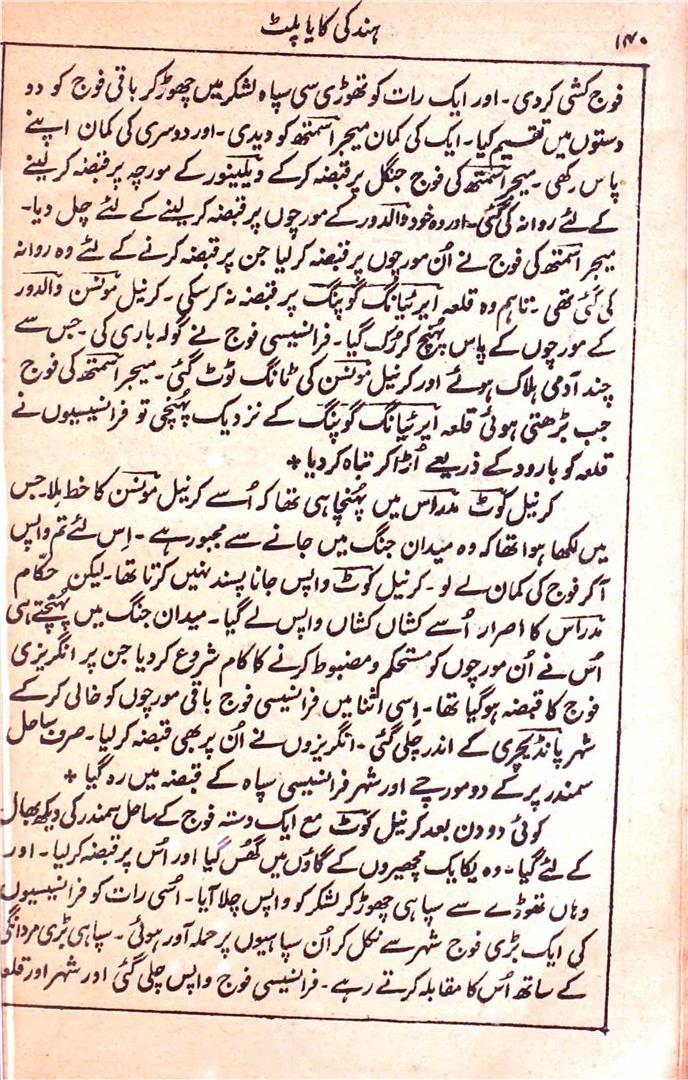 ۱۴۰
ہند کی کایا پلٹ
فوج کشی کردی۔ اور ایک رات کو تھوڑی سی سپاہ لشکر میں چھوڑ کر باقی فوج کو دو
دستوں میں تقسیم کیا۔ ایک کی کمان میجر اسمتھ کو دیدی۔ اور دوسری کی کمان اپنے
پاس رکھی۔ میجر اسمتھ کی فوج جنگل پر قبضہ کرکے ویلینور کے مورچہ پر قبضہ کر لینے
کے لئے روانہ کی گئی۔ اور وہ خود والدور کے مورچوں پر قبضہ کر لینے کے لئے چل دیا۔
میجر اسمتھ کی فوج نے اُن مورچوں پر قبضہ کر لیا جن پر قبضہ کرنے کے لئے وہ روانہ
کی گئی تھی۔ تاہم وہ قلعہ ایرئیانگ گوپنگ پر قبضہ نہ کرسکی۔ کرنیل مونسن والدور
کے مورچوں کے پاس پہنچ کر رُک گیا۔ فرانسیسی فوج نے گولہ باری کی۔ جس سے
چند آدمی ہلاک ہوئے اور کرنیل مونسن کی ٹانگ ٹوٹ گئی۔ میجر اسمتھ کی فوج
جب بڑھتی ہوئی قلعہ ایرئیانگ گوپنگ کے نزدیک پہنچی تو فرانسیسیوں نے
قلعہ کو بارود کے ذریعے اُڑا کر تباہ کر دیا *
کرنیل کوٹ مدراس میں پہنچا ہی تھا کہ اُسے کرنیل مونسن کا خط ملا۔ جس
میں لکھا ہوا تھا کہ وہ میدان جنگ میں جانے سے مجبور ہے۔ اِس لئے تم واپس
آکر فوج کی کمان لے لو۔ کرنیل کوٹ واپس جانا پسند نہیں کرتا تھا۔ لیکن حکّام
مدراس کا اصرار اُسے کشاں کشاں واپس لے گیا۔ میدان جنگ میں پہنچتے ہی
اُس نے اُن مورچوں کو مستحکم و مضبوط کرنے کا کام شروع کر دیا جن پر انگریزی
فوج کا قبضہ ہوگیا تھا۔ اِسی اثنا میں فرانسیسی فوج باقی مورچوں کو خالی کرکے
شہر پانڈیچری کے اندر چلی گئی۔ انگریزوں نے اُن پر بھی قبضہ کر لیا۔ صرف ساحل
سمندر پر کے دو مورچے اور شہر فرانسیسی سپاہ کے قبضہ میں رہ گیا *
کوئی دو دن بعد کرنیل کوٹ مع ایک دستہ فوج کے ساحل سمندر کی دیکھ بھال
کے لئے گیا۔ وہ یکایک مچھیروں کے گاؤں میں گھُس گیا اور اُس پر قبضہ کرلیا۔ اور
وہاں تھوڑے سے سپاہی چھوڑ کر لشکر کو واپس چلا آیا۔ اُسی رات کو فرانسیسیوں
کی ایک بڑی فوج شہر سے نکل کر اُن سپاہیوں پر حملہ آور ہوئی۔ سپاہی بڑی مردانگی
کے ساتھ اُس کا مقابلہ کرتے رہے۔ فرانسیسی فوج واپس چلی گئی اور شہر اور قلعہ